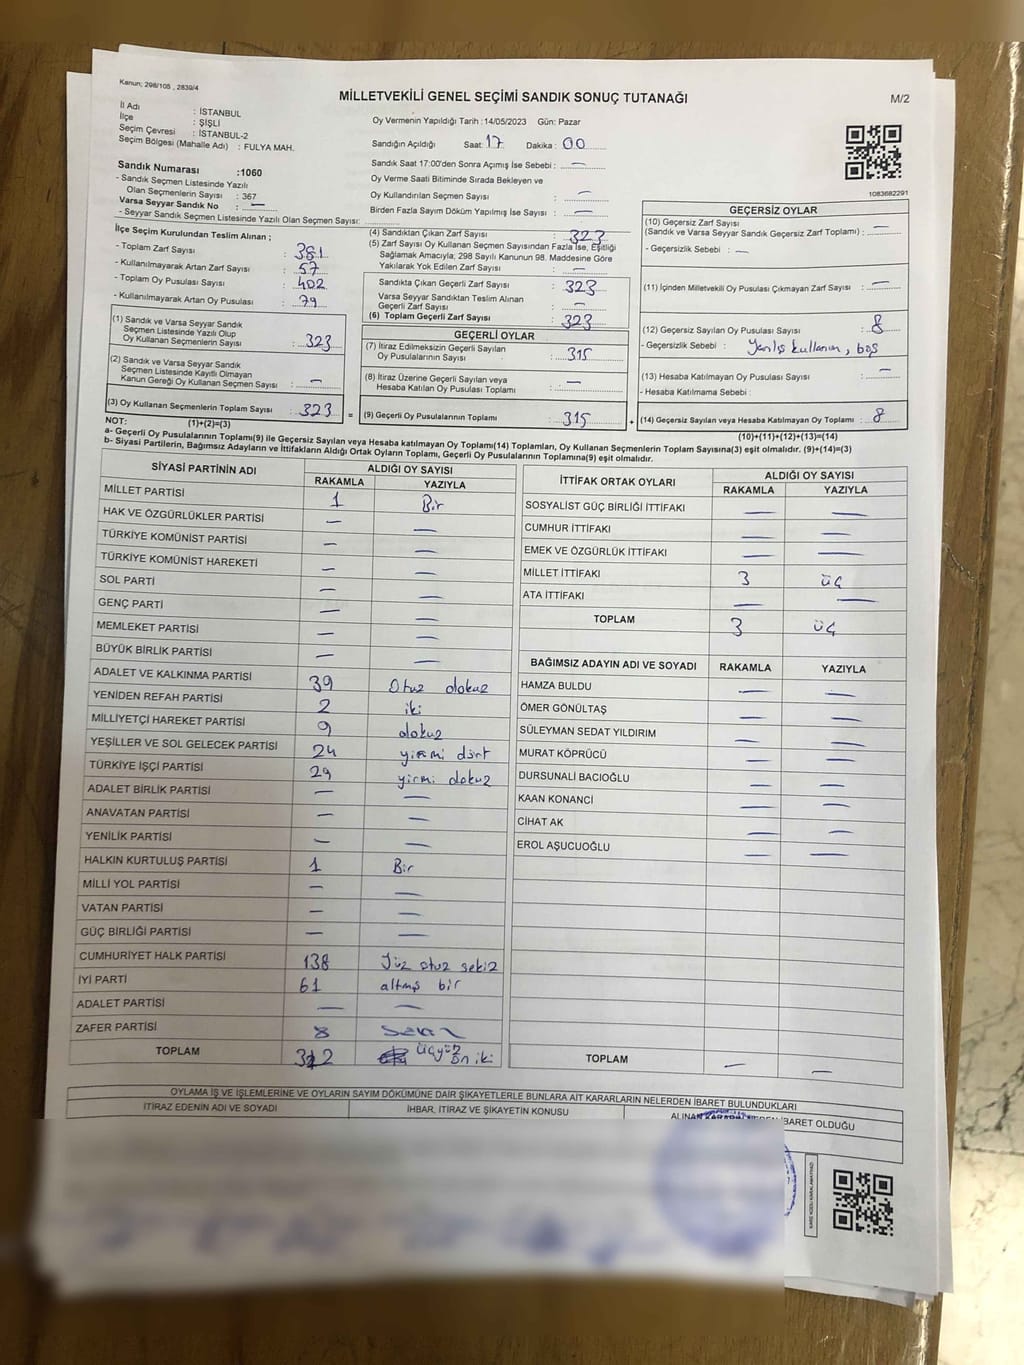 Kanun; 298/105 , 2839/4
MİLLETVEKİLİ GENEL SEÇİMİ SANDIK SONUÇ TUTANAĞI
M/2
İl Adı : İSTANBUL
İlçe : ŞİŞLİ
Seçim Çevresi : İSTANBUL-2
Seçim Bölgesi (Mahalle Adı) : FULYA MAH.
Oy Vermenin Yapıldığı Tarih : 14/05/2023 Gün: Pazar
Sandığın Açıldığı Saat: 17 Dakika : 00
Sandık Saat 17:00'den Sonra Açımış İse Sebebi : —
Oy Verme Saati Bitiminde Sırada Bekleyen ve
Oy Kullandırılan Seçmen Sayısı : —
Birden Fazla Sayım Döküm Yapılmış İse Sayısı : —
1083682291
Sandık Numarası :1060
- Sandık Seçmen Listesinde Yazılı
Olan Seçmenlerin Sayısı : 367
Varsa Seyyar Sandık No : —
- Seyyar Sandık Seçmen Listesinde Yazılı Olan Seçmen Sayısı:
İlçe Seçim Kurulundan Teslim Alınan ;
- Toplam Zarf Sayısı : 381
- Kullanılmayarak Artan Zarf Sayısı : 57
- Toplam Oy Pusulası Sayısı : 402
- Kullanılmayarak Artan Oy Pusulası : 79
(1) Sandık ve Varsa Seyyar Sandık
Seçmen Listesinde Yazılı Olup
Oy Kullanan Seçmenlerin Sayısı : 323
(2) Sandık ve Varsa Seyyar Sandık
Seçmen Listesinde Kayıtlı Olmayan
Kanun Gereği Oy Kullanan Seçmen Sayısı : —
(3) Oy Kullanan Seçmenlerin Toplam Sayısı : 323 =
(1)+(2)=(3)
(4) Sandıktan Çıkan Zarf Sayısı : 323
(5) Zarf Sayısı Oy Kullanan Seçmen Sayısından Fazla İse, Eşitliği
Sağlamak Amacıyla; 298 Sayılı Kanunun 98. Maddesine Göre
Yakılarak Yok Edilen Zarf Sayısı : —
Sandıkta Çıkan Geçerli Zarf Sayısı : 323
Varsa Seyyar Sandıktan Teslim Alınan
Geçerli Zarf Sayısı : —
(6) Toplam Geçerli Zarf Sayısı : 323
GEÇERLİ OYLAR
(7) İtiraz Edilmeksizin Geçerli Sayılan
Oy Pusulalarının Sayısı : 315
(8) İtiraz Üzerine Geçerli Sayılan veya
Hesaba Katılan Oy Pusulası Toplamı : —
(9) Geçerli Oy Pusulalarının Toplamı : 315 +
GEÇERSİZ OYLAR
(10) Geçersiz Zarf Sayısı
(Sandık ve Varsa Seyyar Sandık Geçersiz Zarf Toplamı) : —
- Geçersizlik Sebebi : —
(11) İçinden Milletvekili Oy Pusulası Çıkmayan Zarf Sayısı : —
(12) Geçersiz Sayılan Oy Pusulası Sayısı : 8
- Geçersizlik Sebebi : Yanlış kullanım, boş
(13) Hesaba Katılmayan Oy Pusulası Sayısı : —
- Hesaba Katılmama Sebebi :
(14) Geçersiz Sayılan veya Hesaba Katılmayan Oy Toplamı : 8
(10)+(11)+(12)+(13)=(14)
NOT:
a- Geçerli Oy Pusulalarının Toplamı(9) ile Geçersiz Sayılan veya Hesaba katılmayan Oy Toplamı(14) Toplamları, Oy Kullanan Seçmenlerin Toplam Sayısına(3) eşit olmalıdır. (9)+(14)=(3)
b- Siyasi Partilerin, Bağımsız Adayların ve İttifakların Aldığı Ortak Oyların Toplamı, Geçerli Oy Pusulalarının Toplamına(9) eşit olmalıdır.
SİYASİ PARTİNİN ADI ALDIĞI OY SAYISI
RAKAMLA YAZIYLA
MİLLET PARTİSİ 1 Bir
HAK VE ÖZGÜRLÜKLER PARTİSİ — —
TÜRKİYE KOMÜNİST PARTİSİ — —
TÜRKİYE KOMÜNİST HAREKETİ — —
SOL PARTİ — —
GENÇ PARTİ — —
MEMLEKET PARTİSİ — —
BÜYÜK BİRLİK PARTİSİ — —
ADALET VE KALKINMA PARTİSİ 39 Otuz dokuz
YENİDEN REFAH PARTİSİ 2 iki
MİLLİYETÇİ HAREKET PARTİSİ 9 dokuz
YEŞİLLER VE SOL GELECEK PARTİSİ 24 yirmi dört
TÜRKİYE İŞÇİ PARTİSİ 29 yirmi dokuz
ADALET BİRLİK PARTİSİ — —
ANAVATAN PARTİSİ — —
YENİLİK PARTİSİ — —
HALKIN KURTULUŞ PARTİSİ 1 Bir
MİLLİ YOL PARTİSİ — —
VATAN PARTİSİ — —
GÜÇ BİRLİĞİ PARTİSİ — —
CUMHURİYET HALK PARTİSİ 138 Yüz otuz sekiz
İYİ PARTİ 61 altmış bir
ADALET PARTİSİ — —
ZAFER PARTİSİ 8 sekiz
TOPLAM 312 üçyüz on iki
İTTİFAK ORTAK OYLARI ALDIĞI OY SAYISI
RAKAMLA YAZIYLA
SOSYALİST GÜÇ BİRLİĞİ İTTİFAKI — —
CUMHUR İTTİFAKI — —
EMEK VE ÖZGÜRLÜK İTTİFAKI — —
MİLLET İTTİFAKI 3 üç
ATA İTTİFAKI — —
TOPLAM 3 üç
BAĞIMSIZ ADAYIN ADI VE SOYADI RAKAMLA YAZIYLA
HAMZA BULDU — —
ÖMER GÖNÜLTAŞ — —
SÜLEYMAN SEDAT YILDIRIM — —
MURAT KÖPRÜCÜ — —
DURSUNALİ BACIOĞLU — —
KAAN KONANCİ — —
CİHAT AK — —
EROL AŞUCUOĞLU — —
TOPLAM — —
OYLAMA İŞ VE İŞLEMLERİNE VE OYLARIN SAYIM DÖKÜMÜNE DAİR ŞİKAYETLERLE BUNLARA AİT KARARLARIN NELERDEN İBARET BULUNDUKLARI
İTİRAZ EDENİN ADI VE SOYADI İHBAR, İTİRAZ VE ŞİKAYETİN KONUSU ALINAN KARARIN NEDEN İBARET OLDUĞU